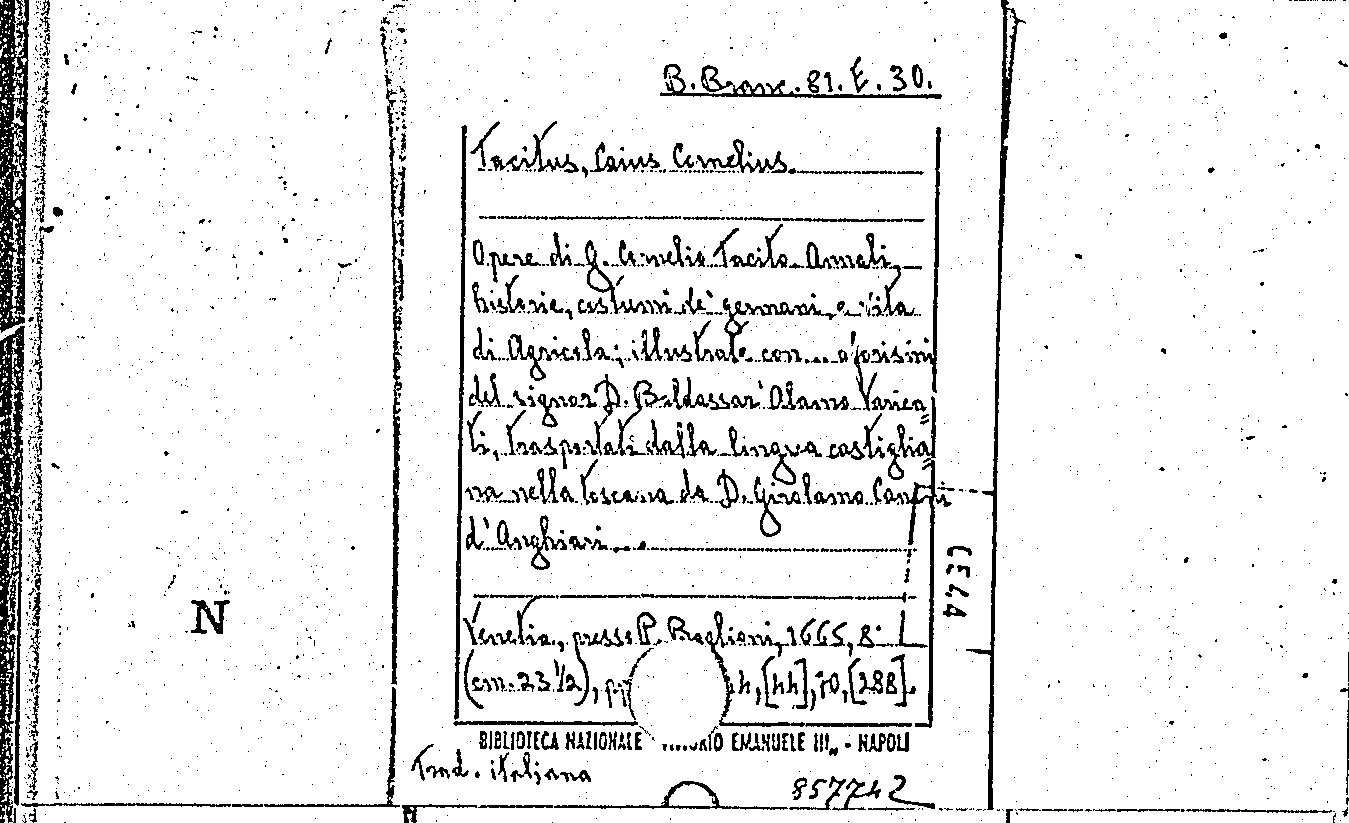 B. Branc. 81. E. 30.
Tacitus, Caius Cornelius.
Opere di G. Cornelio Tacito. Annali,
historie, costumi de' germani, e vita
di Agricola; illustrate con... aforismi
del signor D. Baldassar' Alamo Varien=
ti, trasportati dalla lingua castiglia=
na nella toscana da D. Girolamo Canini
d'Anghiari...
Venetia, presso P. Baglioni, 1665, 8°
(cm. 23 ½), pp 4, [44], 70, [288].
BIBLIOTECA NAZIONALE VITTORIO EMANUELE III„ - NAPOLI
Trad. italiana
857742
N